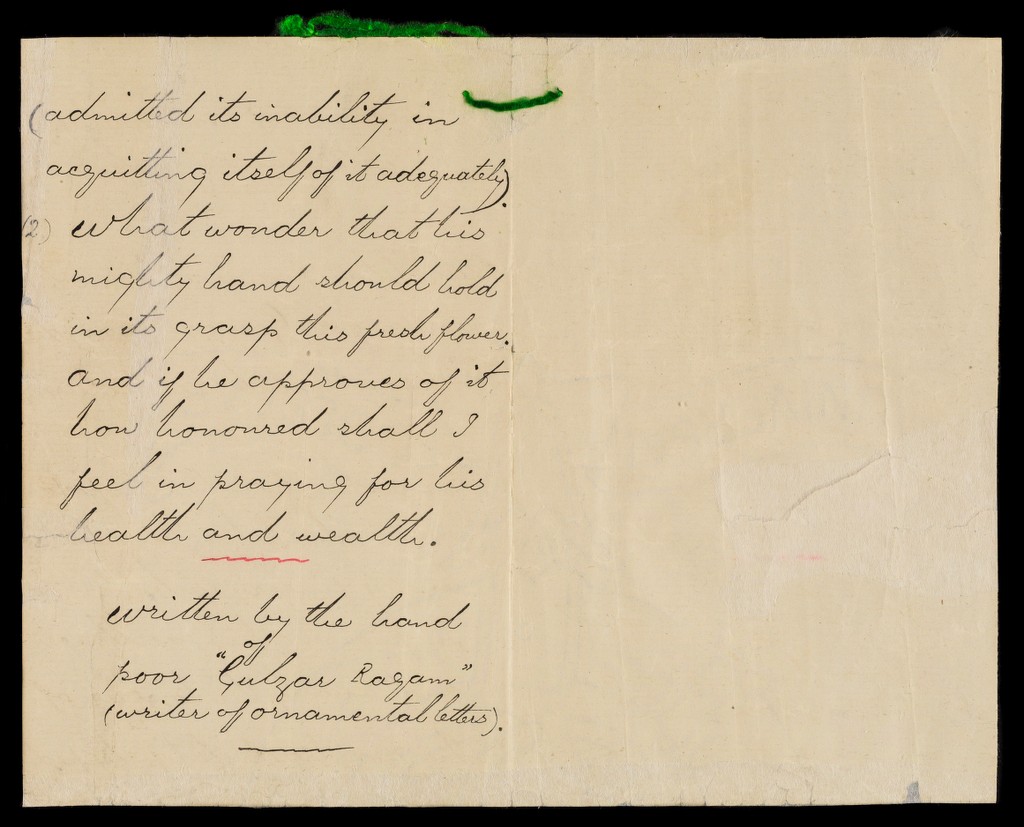 (admitted its inability in
acquitting itself of it adequately).
(2) What wonder that his
mighty hand should hold
in its grasp this fresh flower.
And if he approves of it
how honoured shall I
feel in praying for his
health and wealth.
written by the hand
of
poor "Gulzar Ragam"
(writer of ornamental letters).